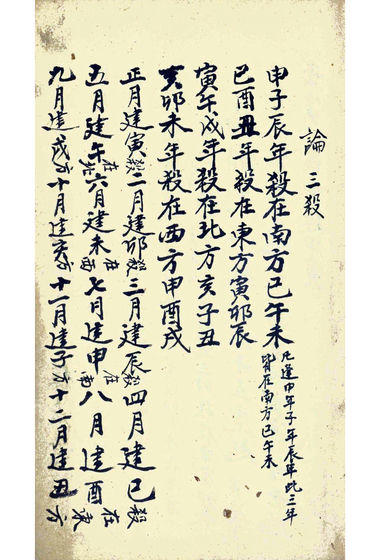 論三殺
申子辰年殺在南方巳午未
凡逢申年子年辰年此三年
皆在南方巳午未
巳酉丑年殺在東方寅卯辰
寅午戌年殺在北方亥子丑
亥卯未年殺在西方申酉戌
正月建寅殺二月建卯殺三月建辰殺四月建巳殺
五月建午在北六月建未在西七月建申在南八月建酉在東
九月建戌方十月建亥方十一月建子方十二月建丑方